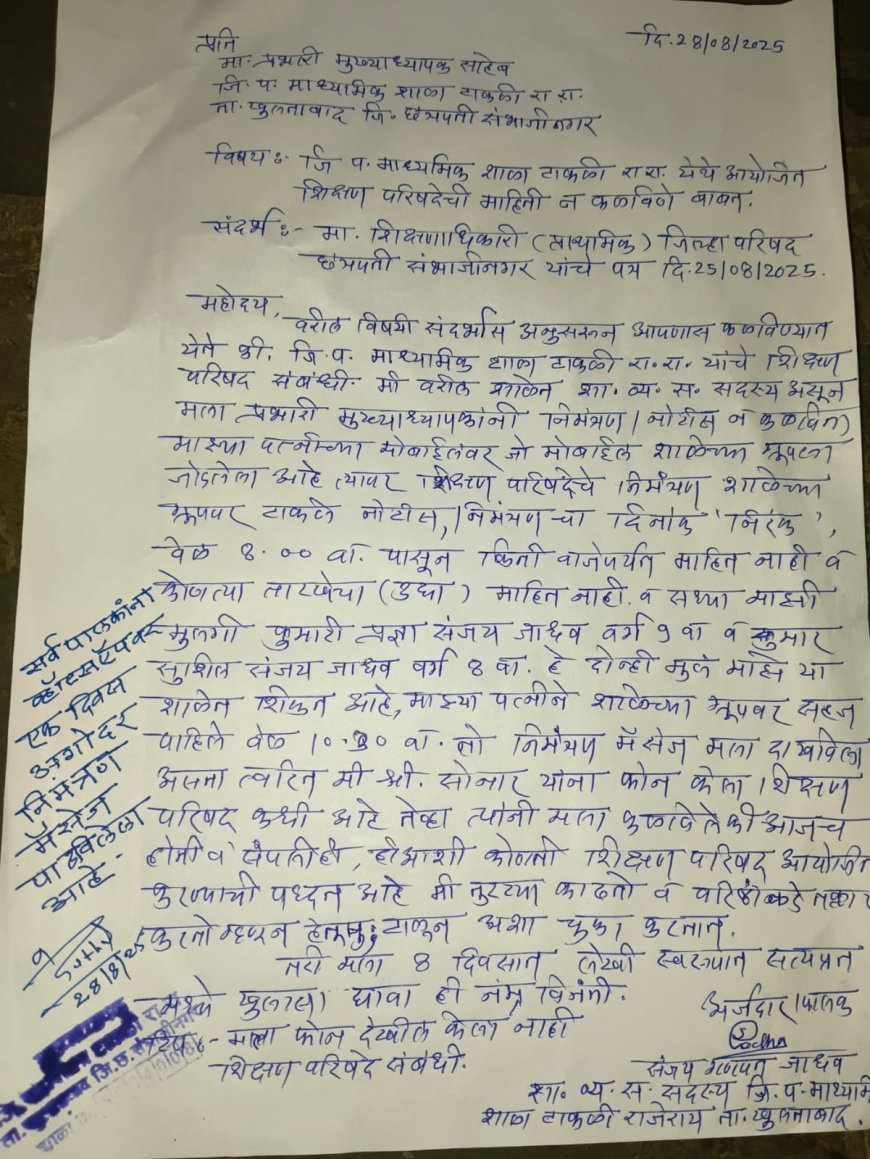 दि. 28/08/2025
प्रति
मा. प्रभारी मुख्याध्यापक साहेब
जि. प. माध्यमिक शाळा टाकळी रा. रा.
ता. खुलताबाद जि. छत्रपती संभाजीनगर
विषय :- जि प. माध्यमिक शाळा टाकळी रा रा. येथे आयोजित
शिक्षण परिषदेची माहिती न कळविणे बाबत.
संदर्भ :- मा. शिक्षणाधिकारी (माध्यमिक) जिल्हा परिषद
छत्रपती संभाजीनगर यांचे पत्र दि. 25/08/2025.
महोदय,
वरील विषयी संदर्भास अनुसरून आपणास कळविण्यात
येते की. जि. प. माध्यमिक शाळा टाकळी रा. रा. यांचे शिक्षण
परिषद संबंधी. मी वरील शाळेत शा. व्य. स. सदस्य असून
मला प्रभारी मुख्याध्यापकांनी निमंत्रण / नोटीस न कळविता
माझ्या पत्नीच्या मोबाईलवर जो मोबाईल शाळेच्या ग्रुपला
जोडलेला आहे त्यावर शिक्षण परिषदेचे निमंत्रण शाळेच्या
ग्रुपवर टाकले नोटीस, / निमंत्रणचा दिनांक 'निरंक',
वेळ 8.00 वा. पासून किती वाजेपर्यंत माहित नाही व
कोणत्या तारखेचा (उद्या) माहित नाही. व सध्या माझी
मुलगी कुमारी प्रज्ञा संजय जाधव वर्ग 9 वा व कुमार
सुशिल संजय जाधव वर्ग 8 वा. हे दोन्ही मुले माझे या
शाळेत शिकत आहे, माझ्या पत्नीने शाळेच्या ग्रुपवर सहज
पाहिले वेळ 10.30 वा. तो निमंत्रण मॅसेज मला दाखविला
असता त्वरित मी श्री. सोनार यांना फोन केला शिक्षण
परिषद कधी आहे तेव्हा त्यांनी मला कळविले की आजच
होती व संपली ही, ही अशी कोणती शिक्षण परिषद आयोजित
करण्याची पध्दत आहे मी त्रुट्या काढतो व वरिष्ठांकडे तक्रार
करतो म्हणून टाळून अशा चुका करतात.
तरी मला 8 दिवसात लेखी स्वरूपात सत्यप्रत
मध्ये खुलासा द्यावा ही नम्र विनंती.
टिप :- मला फोन देखील केला नाही
शिक्षण परिषदे संबंधी.
अर्जदार / पालक
संजय गणपत जाधव
शा. व्य. स. सदस्य जि. प. माध्यमि
शाळा टाकळी राजेराय ता. खुलताबाद.
सर्व पालकांना
व्हॉट्सऍपवर
एक दिवस
अगोदर
निमंत्रण
मॅसेज
पाठविलेला
आहे.
28/8/25